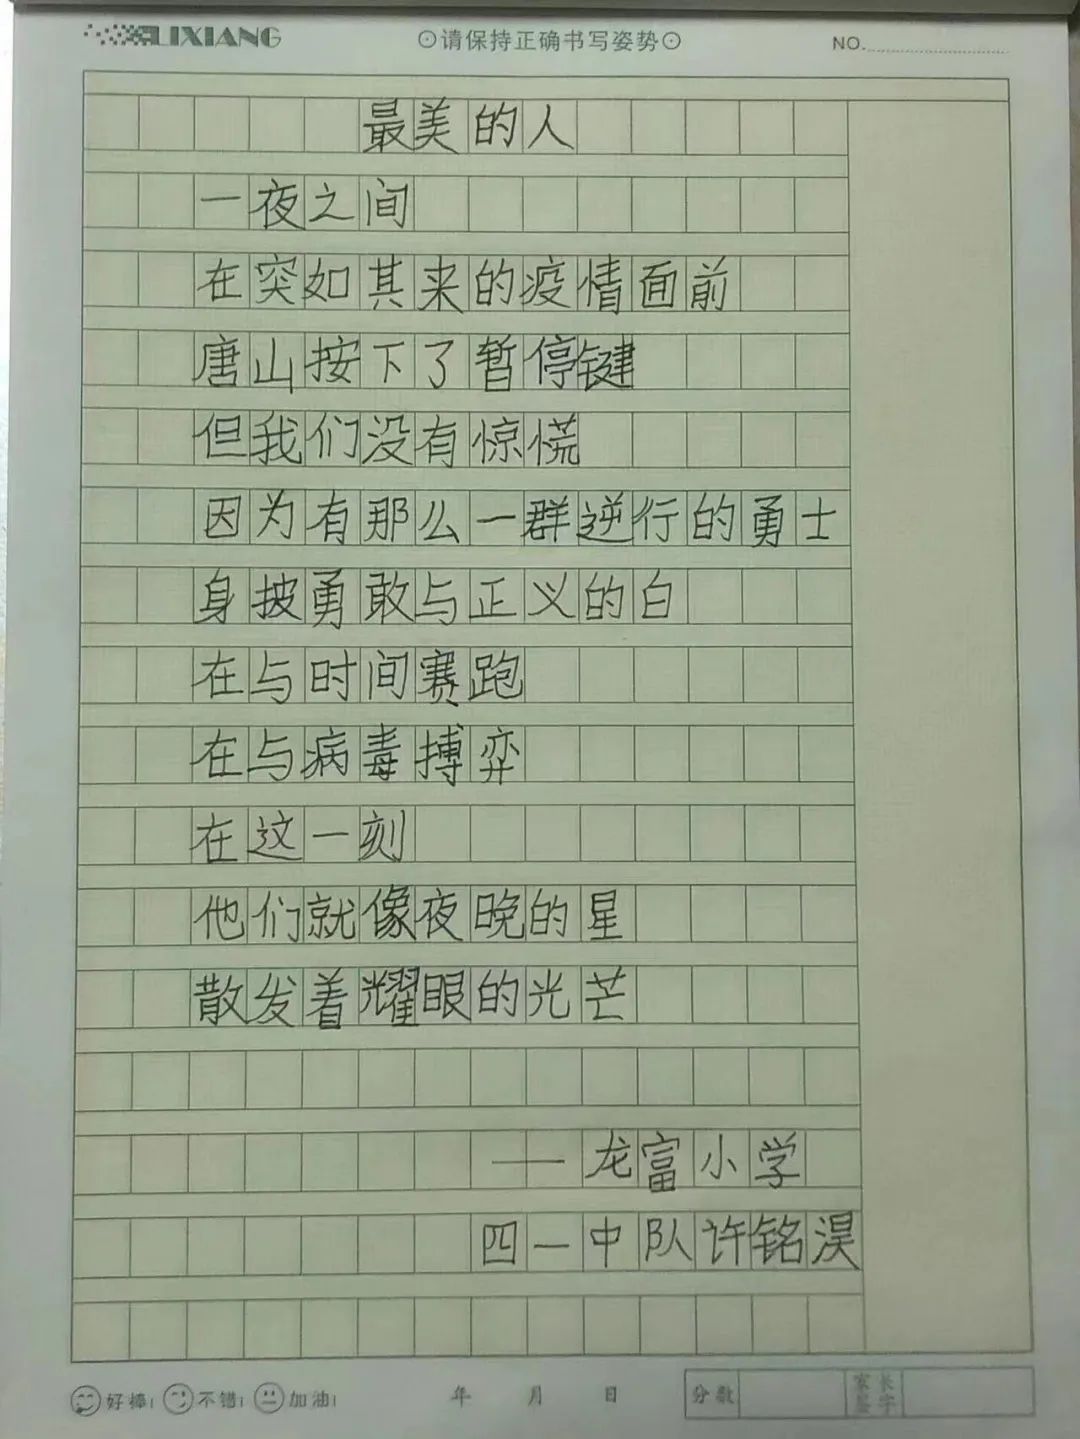 LIXIANG
⊙请保持正确书写姿势⊙
NO.
最美的人
一夜之间
在突如其来的疫情面前
唐山按下了暂停键
但我们没有惊慌
因为有那么一群逆行的勇士
身披勇敢与正义的白
在与时间赛跑
在与病毒搏弈
在这一刻
他们就像夜晚的星
散发着耀眼的光芒
——龙富小学
四一中队许铭淏
好棒! 不错! 加油!
年 月 日
分数
家长签字